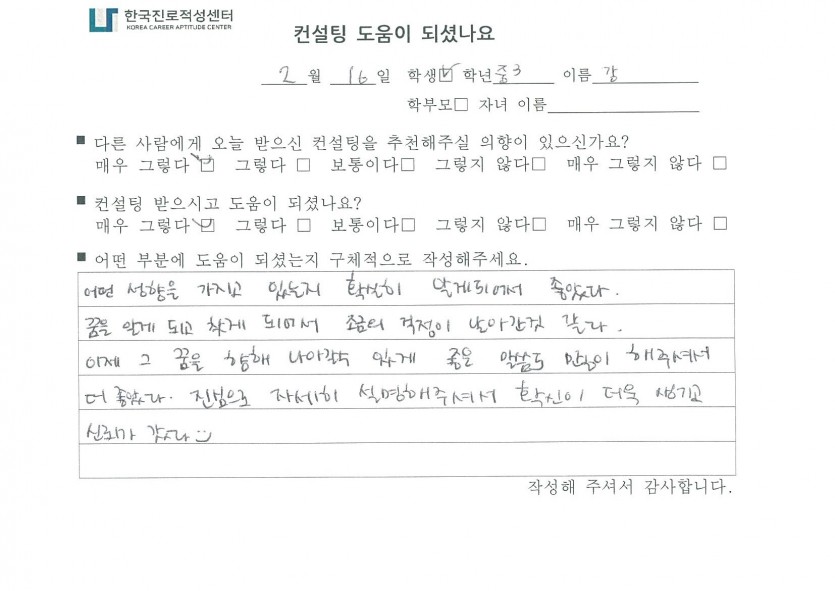 한국진로적성센터
KOREA CAREER APTITUDE CENTER
컨설팅 도움이 되셨나요
2 월 16 일 학생☑ 학년 중3 이름 강
학부모□ 자녀 이름
■ 다른 사람에게 오늘 받으신 컨설팅을 추천해주실 의향이 있으신가요?
매우 그렇다 ☑ 그렇다 □ 보통이다□ 그렇지 않다□ 매우 그렇지 않다 □
■ 컨설팅 받으시고 도움이 되셨나요?
매우 그렇다 ☑ 그렇다 □ 보통이다□ 그렇지 않다□ 매우 그렇지 않다 □
■ 어떤 부분에 도움이 되셨는지 구체적으로 작성해주세요.
어떤 성향을 가지고 있는지 확실히 알게되어서 좋았다.
꿈을 알게 되고 찾게 되어서 조금의 걱정이 날아간것 같다.
이제 그 꿈을 향해 나아갈수 있게 좋은 말씀도 많이 해주셔서
더 좋았다. 진심으로 자세히 설명해주셔서 확신이 더욱 생기고
신뢰가 갔다
작성해 주셔서 감사합니다.